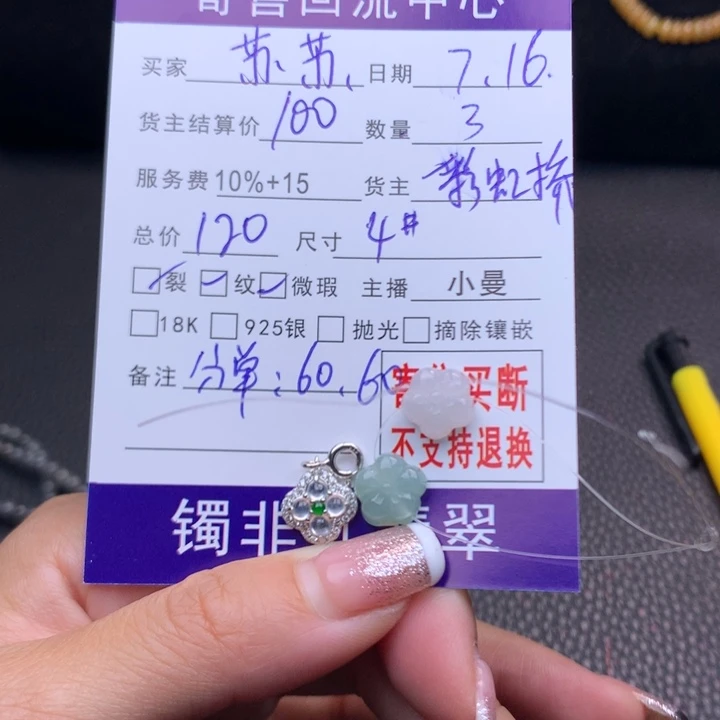 寄售回流中心
买家 苏、苏、 日期 7.16.
货主结算价 100 数量 3
服务费 10%+15 货主 彩虹桥
总价 120 尺寸 4#
裂 纹 微瑕 主播 小曼
18K 925银 抛光 摘除镶嵌
备注 分单：60、60
买断
不支持退换
镯非 翠